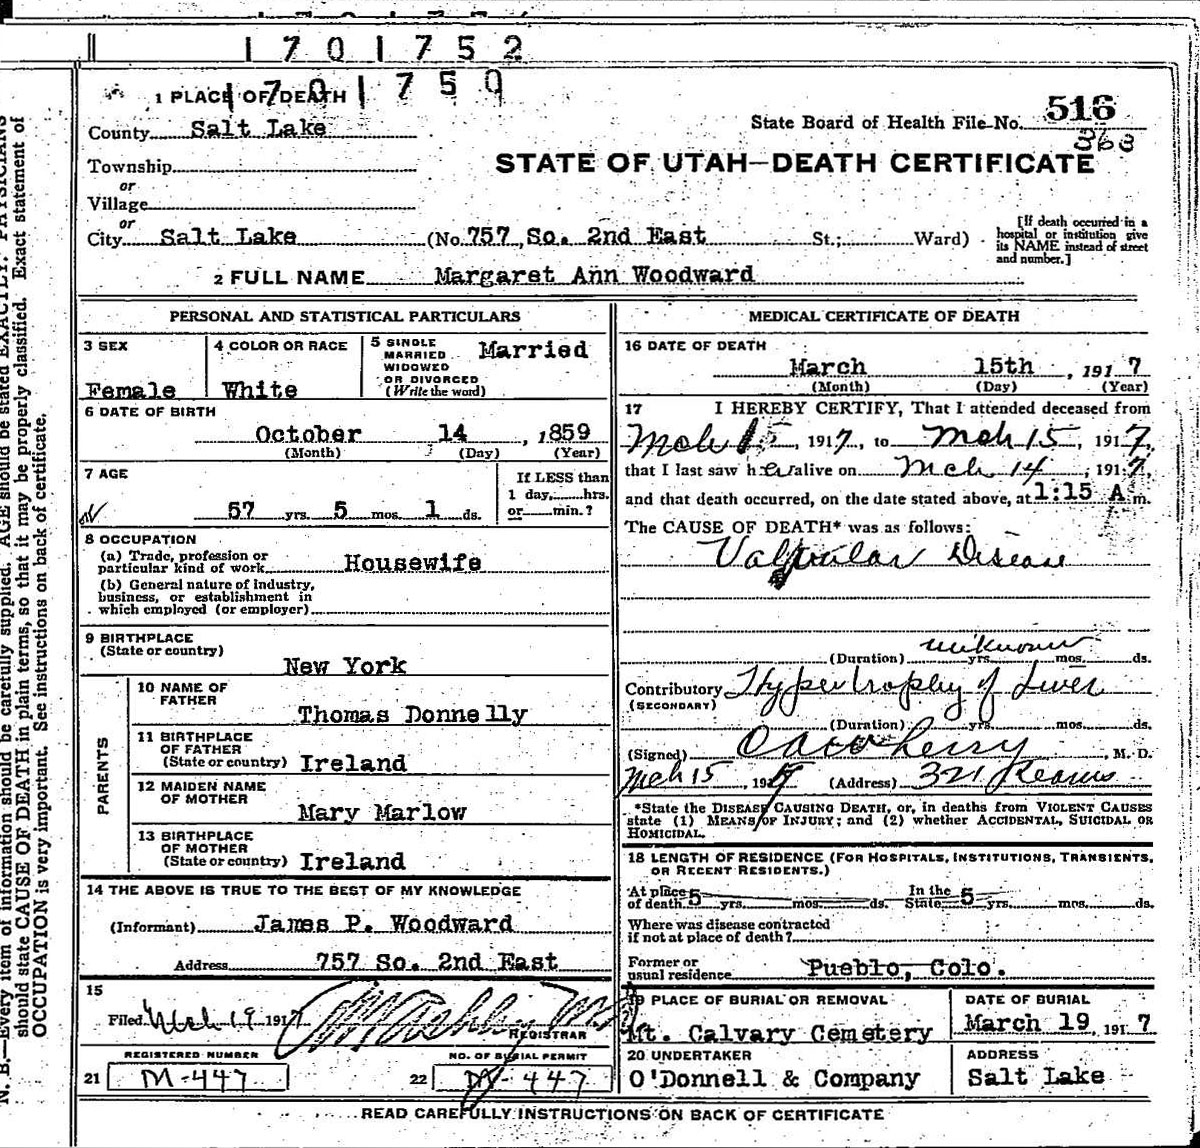 1701752
1701750
1 PLACE OF DEATH
County Salt Lake
State Board of Health File No. 516
363
Township
or
Village
or
City Salt Lake (No. 757 So. 2nd East St.; Ward)
STATE OF UTAH—DEATH CERTIFICATE
[If death occurred in a
hospital or institution give
its NAME instead of street
and number.]
2 FULL NAME Margaret Ann Woodward
PERSONAL AND STATISTICAL PARTICULARS
3 SEX
Female
4 COLOR OR RACE
White
5 SINGLE
MARRIED
WIDOWED
OR DIVORCED
(Write the word)
Married
6 DATE OF BIRTH
October 14, 1859
(Month) (Day) (Year)
7 AGE
57 yrs. 5 mos. 1 ds.
If LESS than
1 day, hrs.
or min.?
8 OCCUPATION
(a) Trade, profession or
particular kind of work Housewife
(b) General nature of industry,
business, or establishment in
which employed (or employer)
9 BIRTHPLACE
(State or country)
New York
PARENTS
10 NAME OF
FATHER
Thomas Donnelly
11 BIRTHPLACE
OF FATHER
(State or country) Ireland
12 MAIDEN NAME
OF MOTHER
Mary Marlow
13 BIRTHPLACE
OF MOTHER
(State or country) Ireland
14 THE ABOVE IS TRUE TO THE BEST OF MY KNOWLEDGE
(Informant) James P. Woodward
Address 757 So. 2nd East
15
Filed Mch 19 1917
REGISTRAR
REGISTERED NUMBER
21 M-447
NO. OF BURIAL PERMIT
22 M-447
MEDICAL CERTIFICATE OF DEATH
16 DATE OF DEATH
March 15th, 1917
(Month) (Day) (Year)
17 I HEREBY CERTIFY, That I attended deceased from
Mch 15, 1917, to Mch 15, 1917,
that I last saw her alive on Mch 14, 1917,
and that death occurred, on the date stated above, at 1:15 A m.
The CAUSE OF DEATH* was as follows:
Valvular Disease
(Duration) unknown yrs. mos. ds.
Contributory Hypertrophy of Liver
(SECONDARY)
(Duration) yrs. mos. ds.
(Signed) M. D.
Mch 15, 1917 (Address) 321 Kearns
*State the DISEASE CAUSING DEATH, or, in deaths from VIOLENT CAUSES
state (1) MEANS OF INJURY; and (2) whether ACCIDENTAL, SUICIDAL OR
HOMICIDAL.
18 LENGTH OF RESIDENCE (FOR HOSPITALS, INSTITUTIONS, TRANSIENTS,
OR RECENT RESIDENTS.)
At place
of death 5 yrs. mos. ds.
In the
State 5 yrs. mos. ds.
Where was disease contracted
if not at place of death?
Former or
usual residence Pueblo, Colo.
19 PLACE OF BURIAL OR REMOVAL
Mt. Calvary Cemetery
DATE OF BURIAL
March 19, 1917
20 UNDERTAKER
O'Donnell & Company
ADDRESS
Salt Lake
READ CAREFULLY INSTRUCTIONS ON BACK OF CERTIFICATE
N. B.—Every item of information should be carefully supplied. AGE should be stated EXACTLY. PHYSICIANS
should state CAUSE OF DEATH in plain terms, so that it may be properly classified. Exact statement of
OCCUPATION is very important. See instructions on back of certificate.